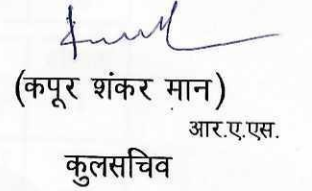 (कपूर शंकर मान)
आर.ए.एस.
कुलसचिव